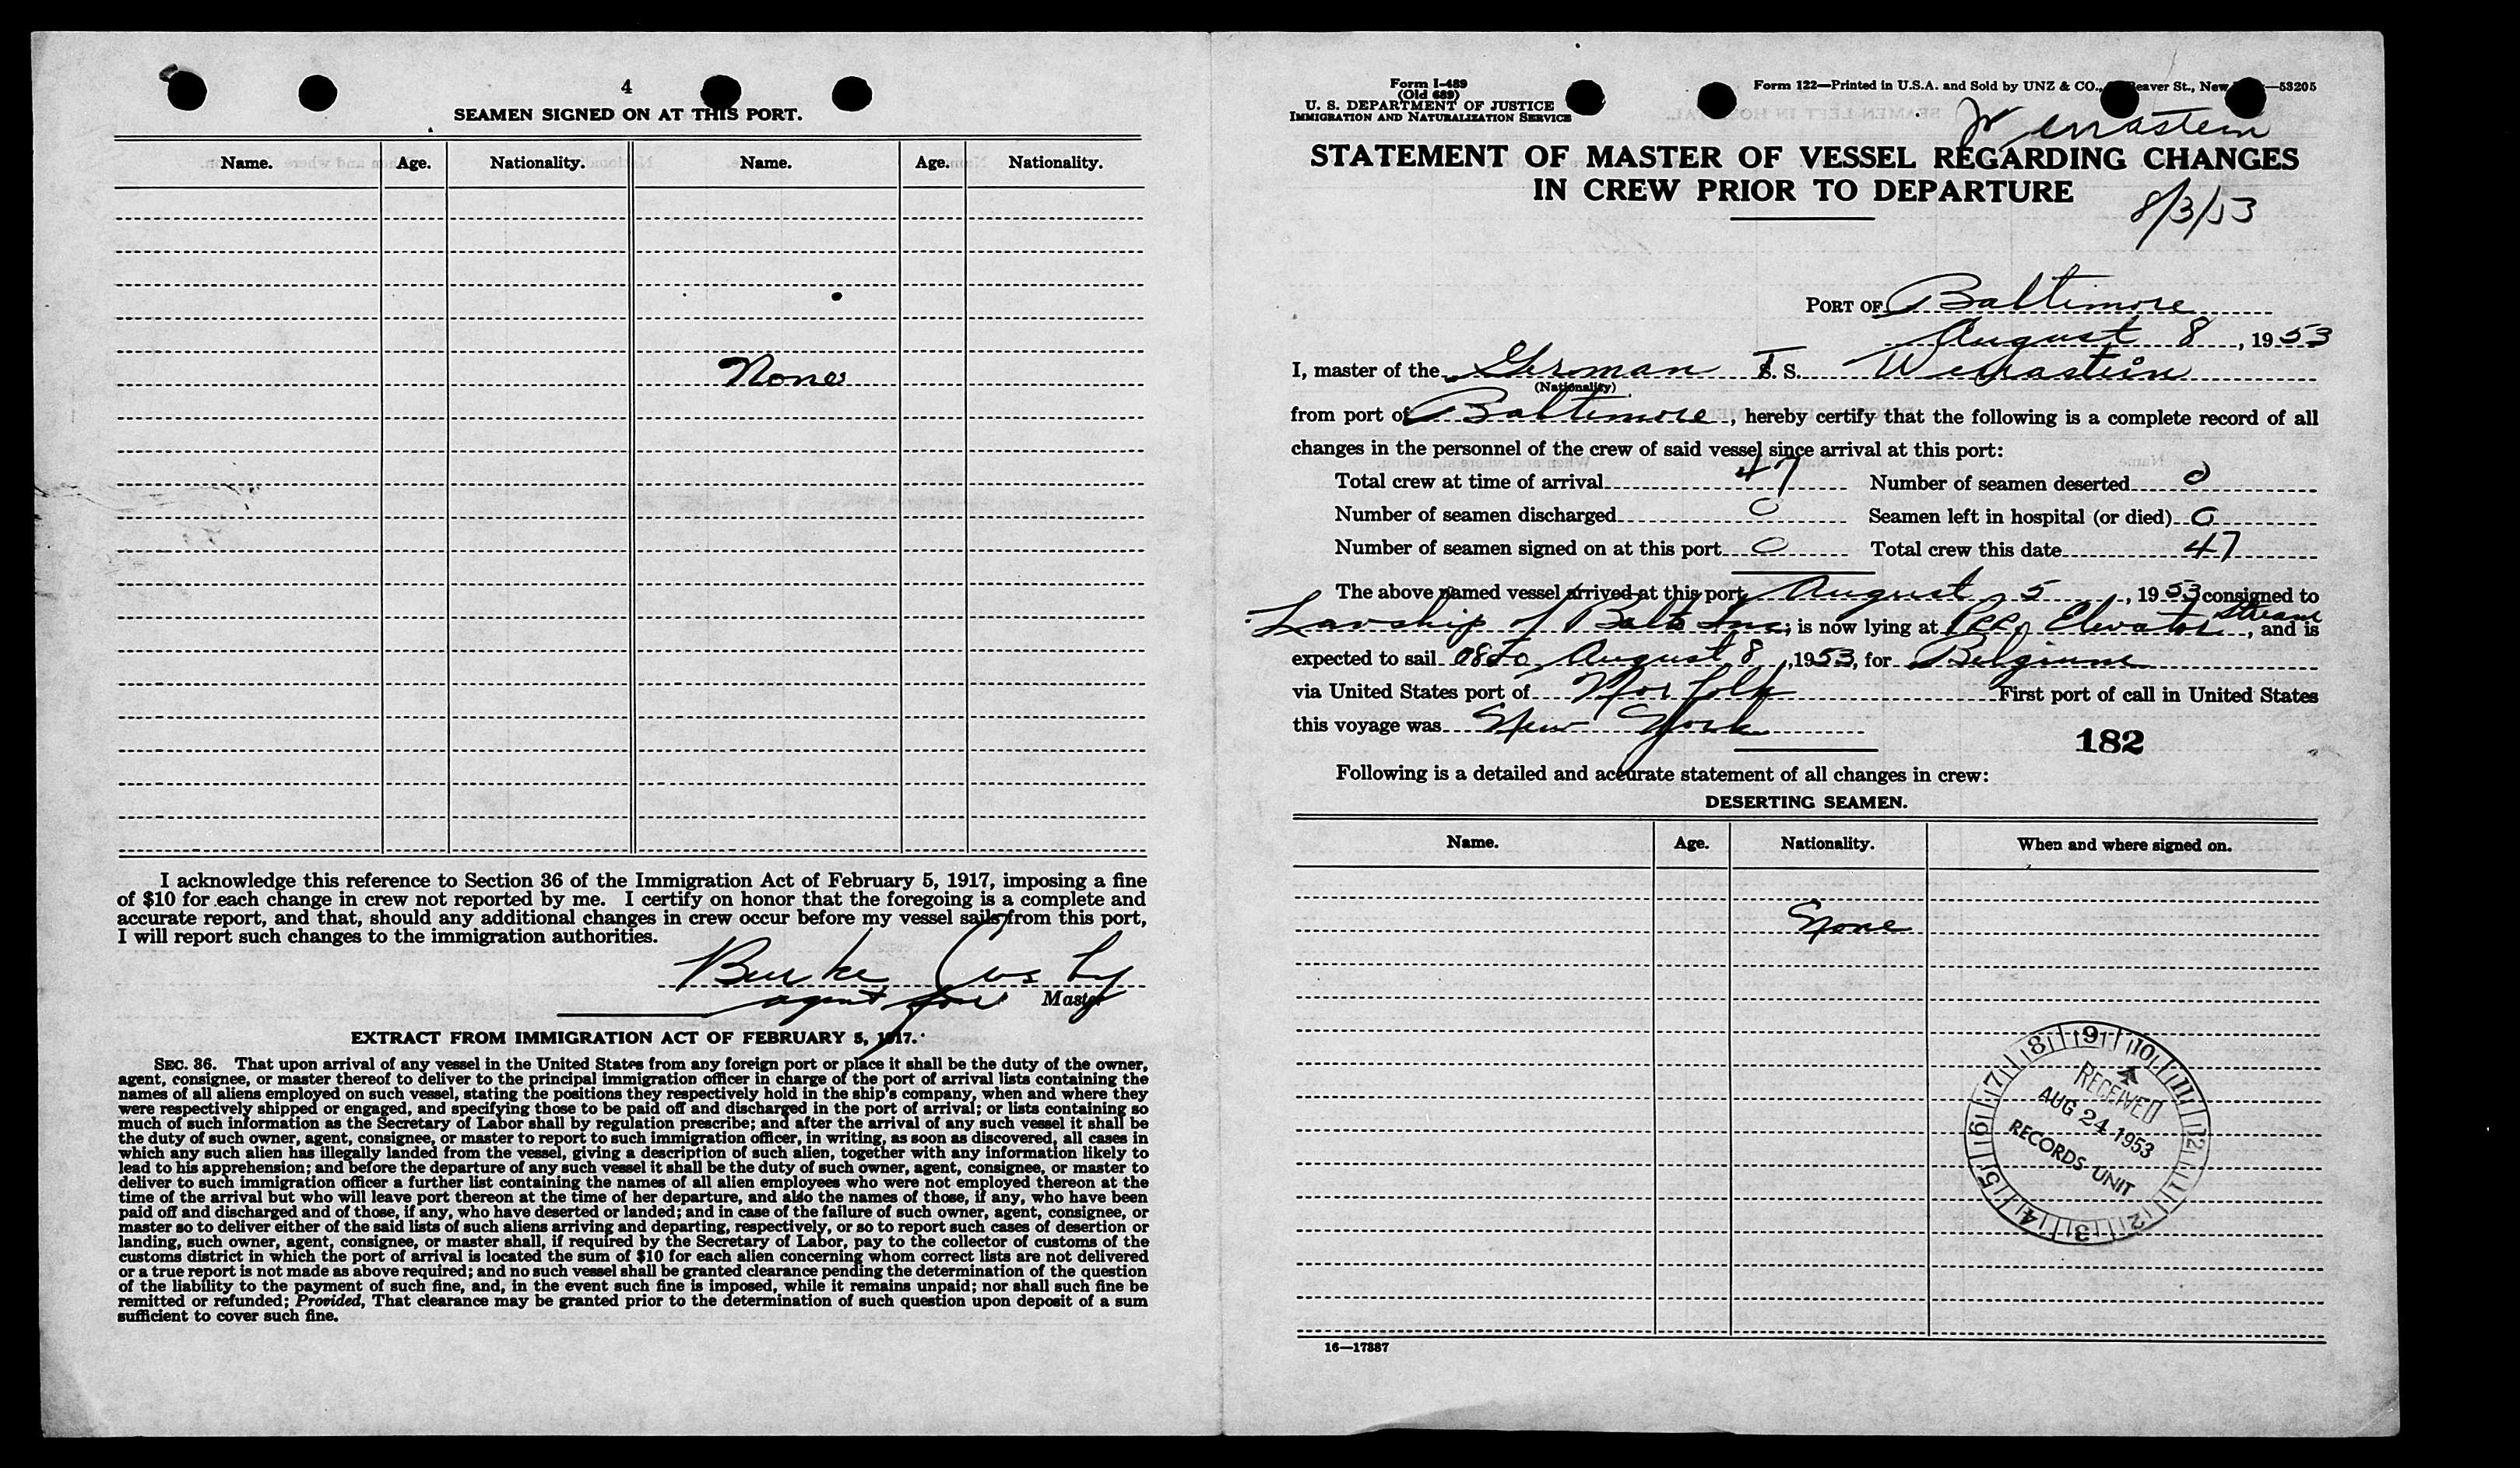 4
SEAMEN SIGNED ON AT THIS PORT.
Name. Age. Nationality. Name. Age. Nationality.
None
I acknowledge this reference to Section 36 of the Immigration Act of February 5, 1917, imposing a fine
of $10 for each change in crew not reported by me. I certify on honor that the foregoing is a complete and
accurate report, and that, should any additional changes in crew occur before my vessel sails from this port,
I will report such changes to the immigration authorities.
Burke
agent for Master
EXTRACT FROM IMMIGRATION ACT OF FEBRUARY 5, 1917.
SEC. 36. That upon arrival of any vessel in the United States from any foreign port or place it shall be the duty of the owner,
agent, consignee, or master thereof to deliver to the principal immigration officer in charge of the port of arrival lists containing the
names of all aliens employed on such vessel, stating the positions they respectively hold in the ship's company, when and where they
were respectively shipped or engaged, and specifying those to be paid off and discharged in the port of arrival; or lists containing so
much of such information as the Secretary of Labor shall by regulation prescribe; and after the arrival of any such vessel it shall be
the duty of such owner, agent, consignee, or master to report to such immigration officer, in writing, as soon as discovered, all cases in
which any such alien has illegally landed from the vessel, giving a description of such alien, together with any information likely to
lead to his apprehension; and before the departure of any such vessel it shall be the duty of such owner, agent, consignee, or master to
deliver to such immigration officer a further list containing the names of all alien employees who were not employed thereon at the
time of the arrival but who will leave port thereon at the time of her departure, and also the names of those, if any, who have been
paid off and discharged and of those, if any, who have deserted or landed; and in case of the failure of such owner, agent, consignee, or
master so to deliver either of the said lists of such aliens arriving and departing, respectively, or so to report such cases of desertion or
landing, such owner, agent, consignee, or master shall, if required by the Secretary of Labor, pay to the collector of customs of the
customs district in which the port of arrival is located the sum of $10 for each alien concerning whom correct lists are not delivered
or a true report is not made as above required; and no such vessel shall be granted clearance pending the determination of the question
of the liability to the payment of such fine, and, in the event such fine is imposed, while it remains unpaid; nor shall such fine be
remitted or refunded; Provided, That clearance may be granted prior to the determination of such question upon deposit of a sum
sufficient to cover such fine.
Form I-489
(Old 689)
U. S. DEPARTMENT OF JUSTICE
IMMIGRATION AND NATURALIZATION SERVICE
Form 122—Printed in U.S.A. and Sold by UNZ & CO., Beaver St., New —53205
Werrastein
STATEMENT OF MASTER OF VESSEL REGARDING CHANGES
IN CREW PRIOR TO DEPARTURE
8/3/53
PORT OF Baltimore
August 8, 1953
I, master of the German S. S. Werrastein
(Nationality)
from port of Baltimore, hereby certify that the following is a complete record of all
changes in the personnel of the crew of said vessel since arrival at this port:
Total crew at time of arrival 47 Number of seamen deserted 0
Number of seamen discharged 0 Seamen left in hospital (or died) 0
Number of seamen signed on at this port 0 Total crew this date 47
The above named vessel arrived at this port August 5, 1953 consigned to
Lavship of Balto Inc; is now lying at Elevator Stream, and is
expected to sail August 8, 1953, for Belgium
via United States port of Norfolk First port of call in United States
this voyage was New York
182
Following is a detailed and accurate statement of all changes in crew:
DESERTING SEAMEN.
Name. Age. Nationality. When and where signed on.
None
RECEIVED
AUG 24 1953
RECORDS UNIT
8 9 10 11 12 1 2 3 4 5 6 7
16—17387